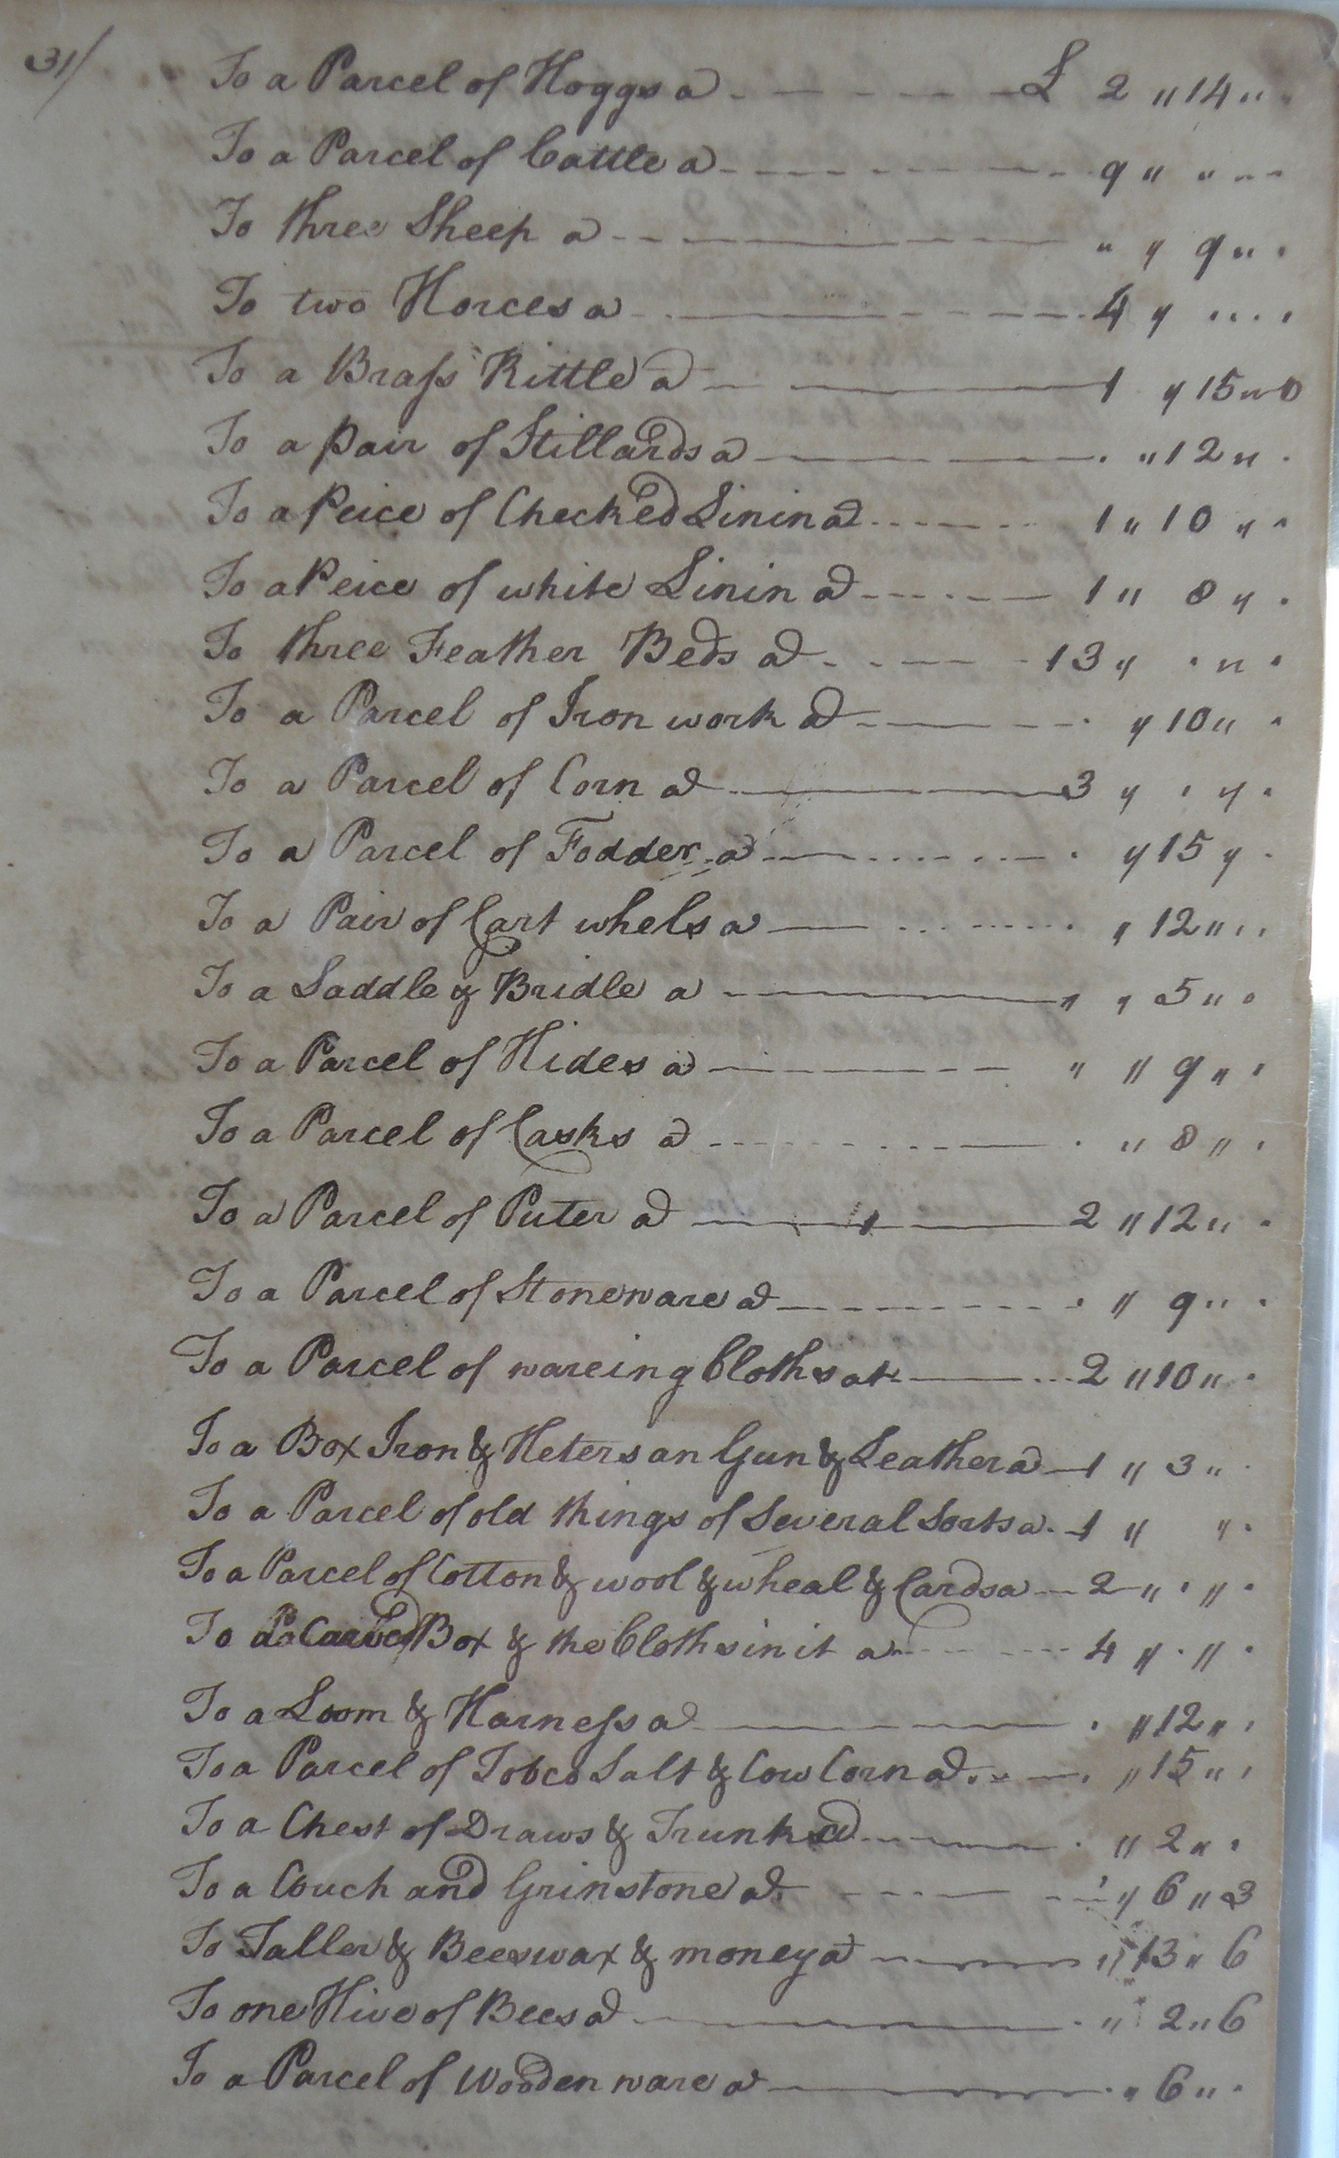 31/
To a Parcel of Hoggs a £ 2 " 14 "
To a Parcel of Cattle a 9 " "
To three Sheep a " " 9 "
To two Horces a 4 "
To a Brass Kittle a 1 " 15 " 0
To a pair of Stillards a " 12 "
To a Peice of Checked Linin a 1 " 10 "
To a Peice of white Linin a 1 " 8 "
To three Feather Beds a 13 " "
To a Parcel of Iron work a " 10 "
To a Parcel of Corn a 3 " "
To a Parcel of Fodder a " 15 "
To a Pair of Cart whels a " 12 "
To a Saddle & Bridle a " " 5 "
To a Parcel of Hides a " " 9 "
To a Parcel of Casks a " 8 "
To a Parcel of Puter a 2 " 12 "
To a Parcel of Stoneware a " 9 "
To a Parcel of wareing Cloths at 2 " 10 "
To a Box Iron & Heters an Gun & Leather a 1 " 3 "
To a Parcel of old things of Several Sorts a 1 " "
To a Parcel of Cotton & wool & wheal & Cards a 2 " "
To a Carved Box & the Cloths in it a 4 " "
To a Loom & Harness a " 12 "
To a Parcel of Tobco Salt & Cow Corn a " 15 "
To a Chest of Draws & Trunk a " 2 "
To a Couch and Grinstone a " 6 " 3
To Taller & Beeswax & money a " 13 " 6
To one Hive of Bees a " 2 " 6
To a Parcel of Wooden ware a " 6 "